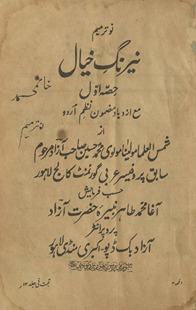 نو ترمیم
نیرنگ خیال
حصہ اول
مع ازدیاد مضمون نظم اردو
از
شمس العلما مولینا مولوی محمد حسین صاحب آزاد مرحوم
سابق پروفیسر عربی گورنمنٹ کالج لاہور
حسب فرمایش
آغا محمد طاہر نبیرہ حضرت آزاد
پروپرائٹر
آزاد بک ڈپو اکبری منڈی لاہور